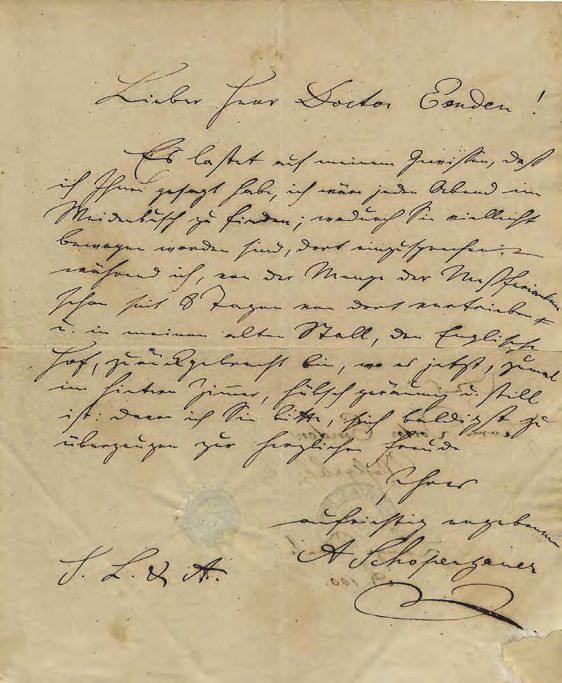 Lieber Herr Doctor Emden!
Es lastet auf meinem Gewissen, daß
ich Ihnen gesagt habe, ich wäre jeden Abend im
Weidenbusch zu finden; wodurch Sie vielleicht
bewogen worden sind, dort einzusprechen –
während ich, von der Menge der
schon seit 8 Tagen von dort vertrieben
u. in meinen alten Stall, den Englischen
Hof, zurückgebracht bin, wo es jetzt, zumal
im hintern Zimmer, hübsch geräumig u. still
ist; davon ich Sie bitte, sich baldigst zu
überzeugen zur herzlichen Freude
Ihres
aufrichtig ergebenen
A Schopenhauer
S. L. & A.